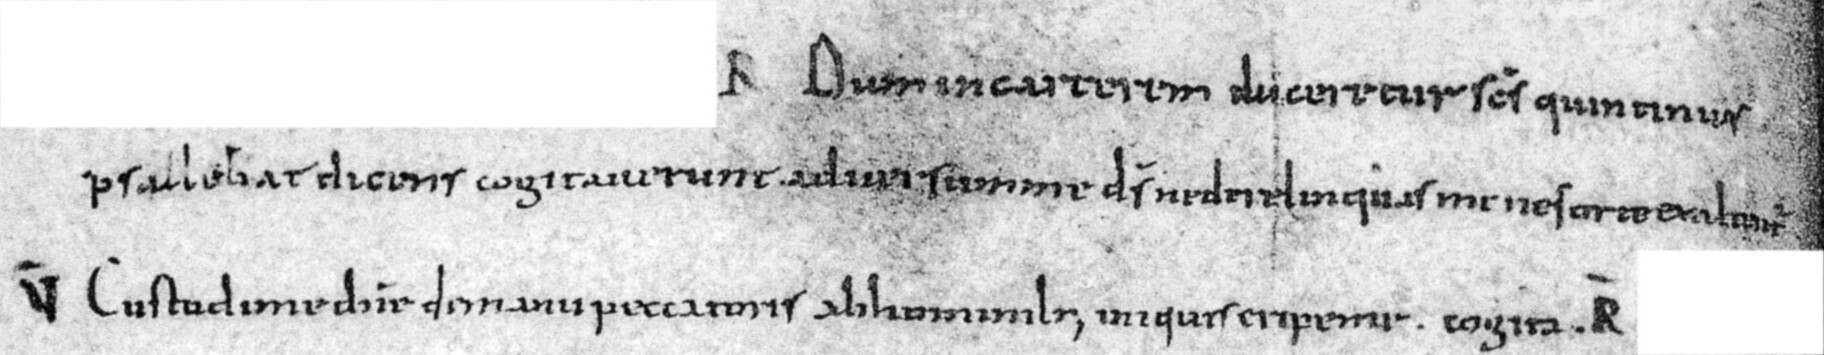 R Dum in carcerem duceretur scs̄ quintinus
psallebat dicens cogitauerunt aduersum me ds̄ ne derelinquas me ne forte exaltent᷑
V̄ Custodi me dn̄e de manu peccatoris abhominib; iniquis eripe me. cogita. R̄